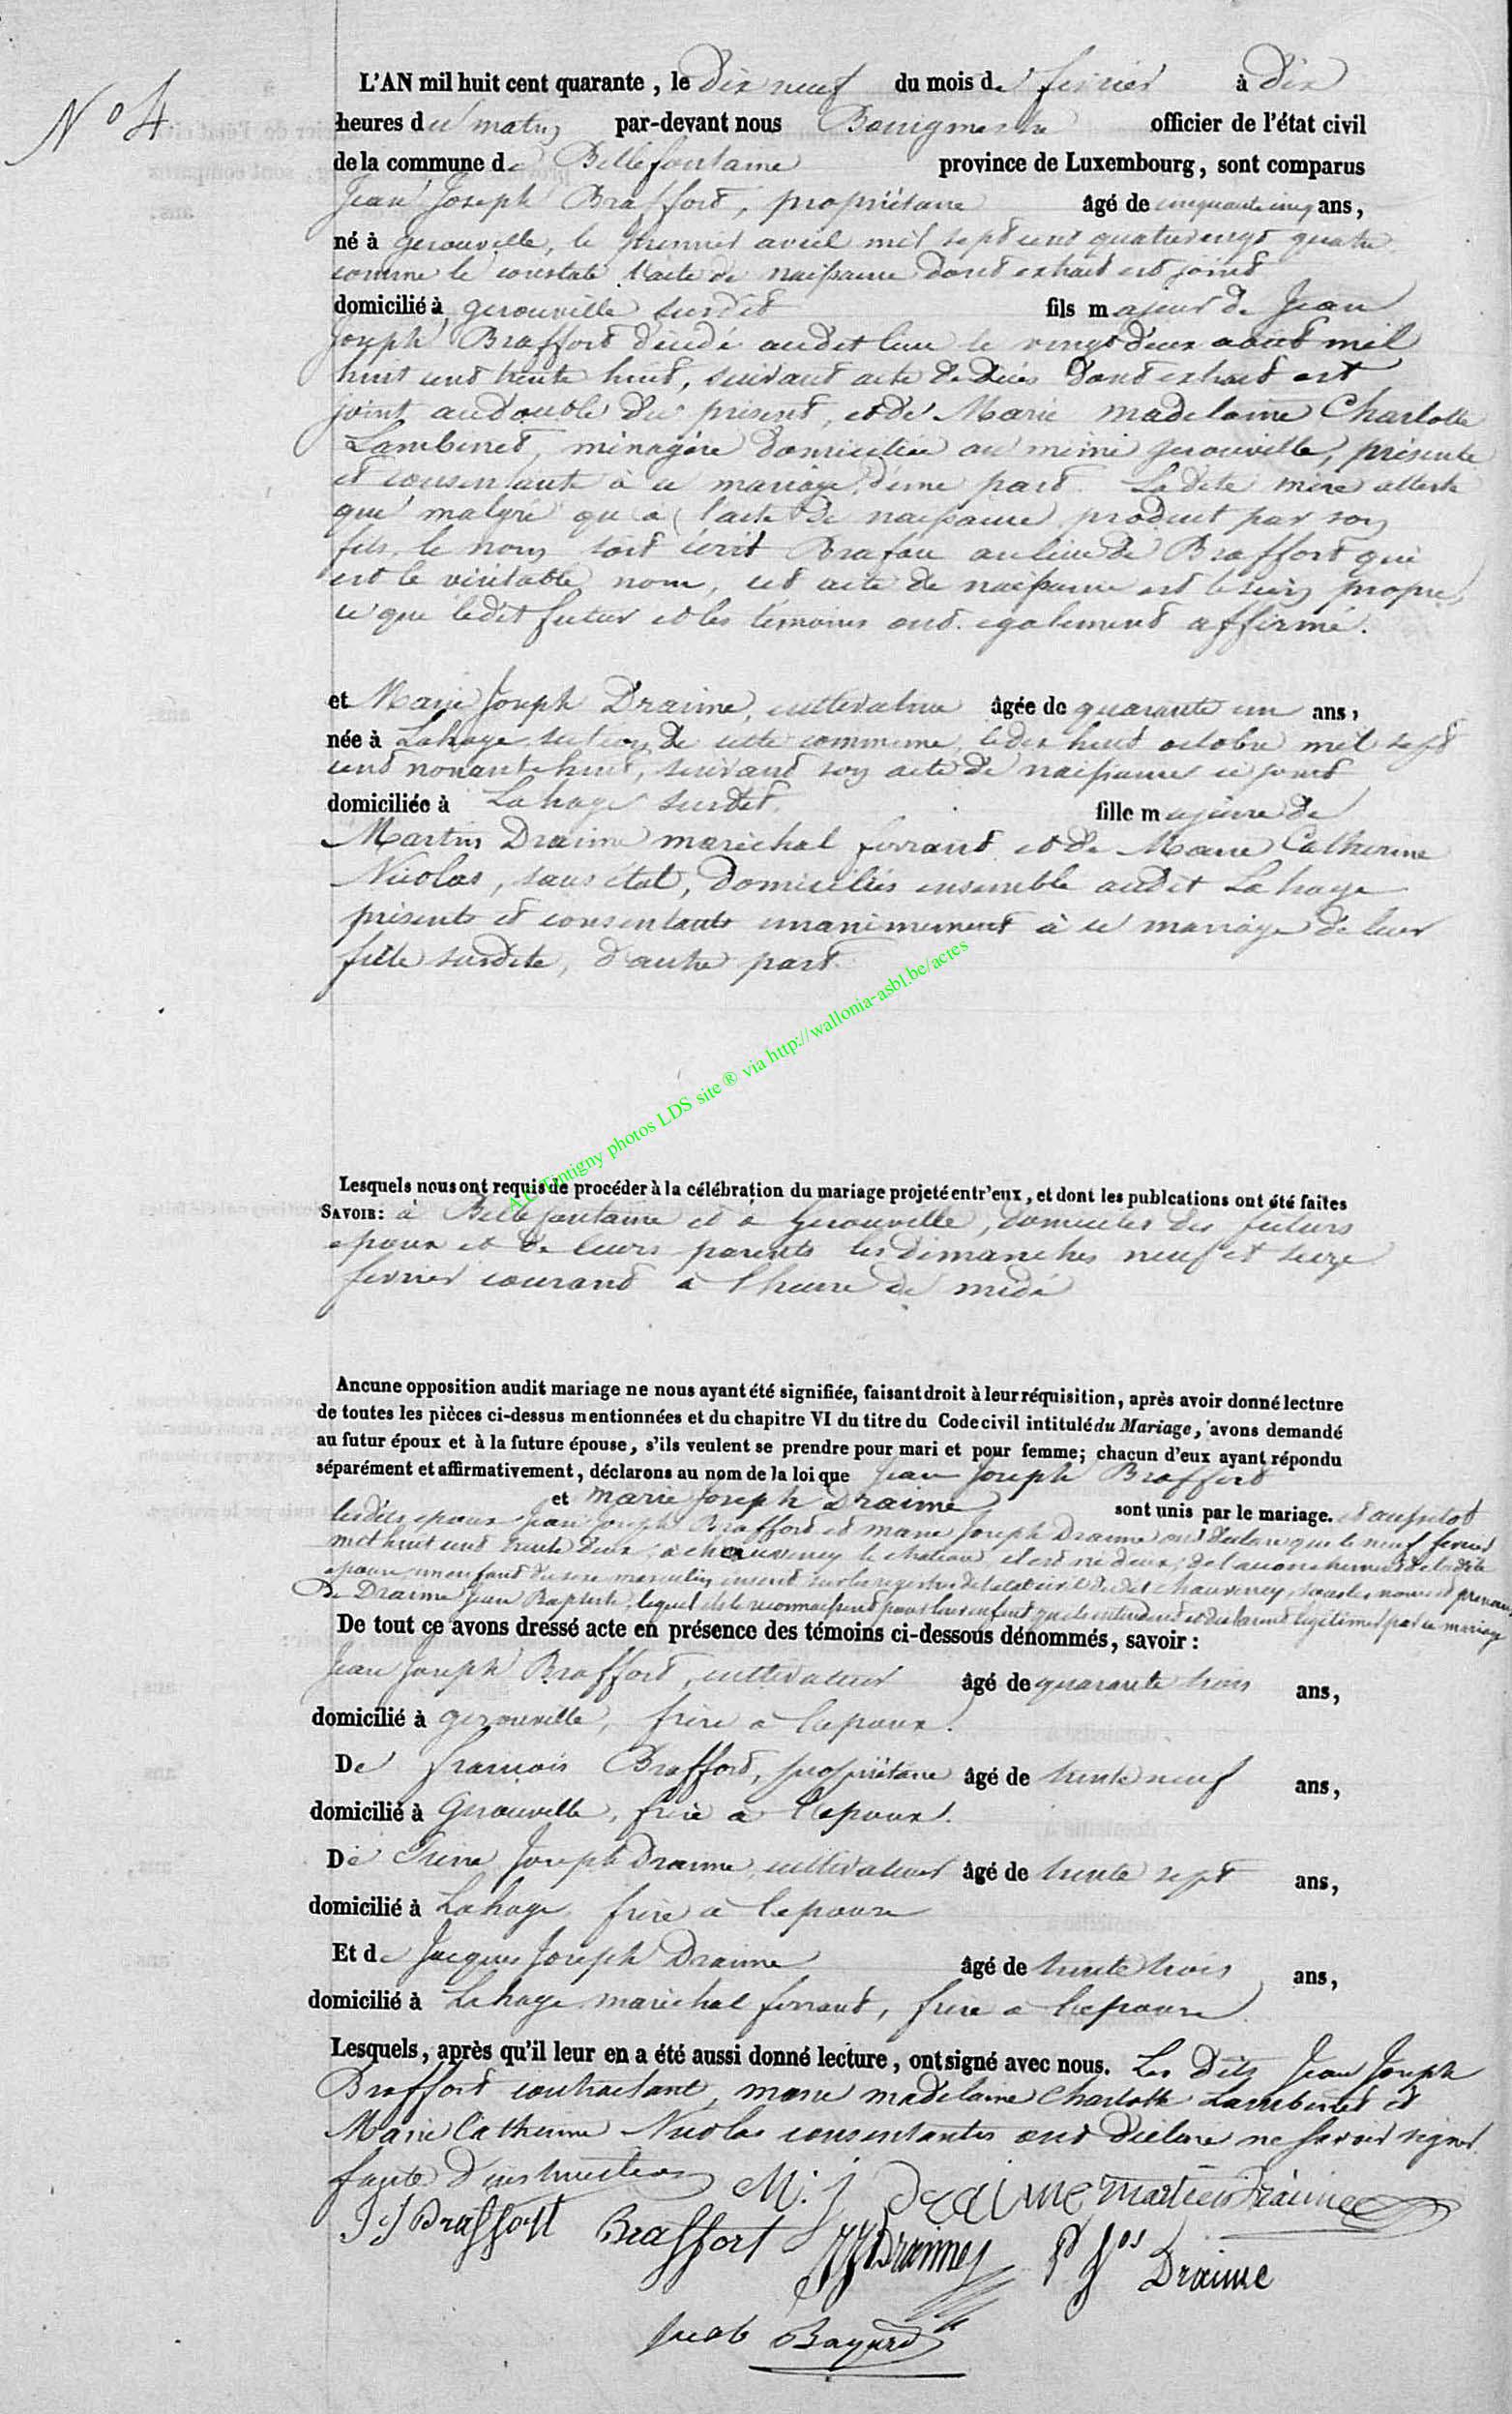 N° 4
L'AN mil huit cent quarante, le dix neuf du mois de fevrier à dix
heures du matin par-devant nous Bourgmestre officier de l'état civil
de la commune de Bellefontaine province de Luxembourg, sont comparus
Jean Joseph Braffort, propriétaire âgé de cinquante cinq ans,
né à gerouville, le premier avril mil sept cent quatrevingt quatre
comme le constate l'acte de naissance dont extrait est joint
domicilié à gerouville susdit fils majeur de Jean
Joseph Braffort décédé audit lieu le vingt deux aout mil
huit cent trente huit, suivant acte de décès dont extrait est
joint au double du présent, et de Marie madelaine Charlotte
Lambinet, ménagère domiciliée au même gerouville, présente
et consentante à ce mariage, d'une part. Ledite mère atteste
que malgré qu'à l'acte de naissance produit par son
fils, le nom soit écrit Brafau au lieu de Braffort qui
est le véritable nom, cet acte de naissance est le sien propre
ce que ledit futur et les témoins ont egalement affirmé.
et Marie Joseph Draime, cultivatrice âgée de quarante un ans,
née à Lahage section de cette commune, le dix huit octobre mil sept
cent nonante huit, suivant son acte de naissance ci joint
domiciliée à Lahage susdit. fille majeure de
Martin Draime maréchal ferrant et de Marie Catherine
Nicolas, sans état, domiciliés ensemble audit Lahage
présents et consentants unanimement à ce mariage de leur
fille susdite, d'autre part.
A.E. Tintigny photos LDS site ® via http://wallonia-asbl.be/actes
Lesquels nous ont requis de procéder à la célébration du mariage projeté entr'eux, et dont les publcations ont été faites
SAVOIR: à Bellefontaine et à Gerouville, domiciles des futurs
epoux et de leurs parents les dimanches neuf et seize
fevrier courant à l'heure de midi
Aucune opposition audit mariage ne nous ayant été signifiée, faisant droit à leur réquisition, après avoir donné lecture
de toutes les pièces ci-dessus mentionnées et du chapitre VI du titre du Code civil intitulé du Mariage, avons demandé
au futur époux et à la future épouse, s'ils veulent se prendre pour mari et pour femme; chacun d'eux ayant répondu
séparément et affirmativement, déclarons au nom de la loi que Jean Joseph Braffort
et Marie Joseph Draime sont unis par le mariage. et aussitot
lesdits epoux Jean Joseph Braffort et marie Joseph Draime ont déclaré que le neuf fevrier
mil huit cent trente deux, à chauvency le chateau il est né deux, de l'accouchement de ladite
epouse un enfant du sexe masculin inscrit sur les registres de l'etat civil dudit chauvency, sous les noms et prenoms
de Draime Jean Baptiste, lequel ils le reconnaissent pour leur enfant qu'ils entendent et déclarent légitimer par ce mariage
De tout ce avons dressé acte en présence des témoins ci-dessous dénommés, savoir:
Jean Joseph Braffort, cultivateur âgé de quarante trois ans,
domicilié à gerouville, frère à l'epoux.
De françois Braffort, propriétaire âgé de trente neuf ans,
domicilié à Gerouville, frère à l'epoux.
De Joseph Draime, cultivateur âgé de trente sept ans,
domicilié à Lahage frère à l'epouse
Et de Jacques Joseph Draime âgé de trente trois ans,
domicilié à Lahage maréchal ferrant, frère à l'epouse
Lesquels, après qu'il leur en a été aussi donné lecture, ont signé avec nous. Les dits Jean Joseph
Braffort contractant, marie madelaine Charlotte Lambinet et
Marie Catherine Nicolas consentantes ont déclaré ne savoir signer
faute d'instruction M. j Draime martin Draime
J J Braffort Braffort J J Draime P Jos Draime
Jacob Bayard